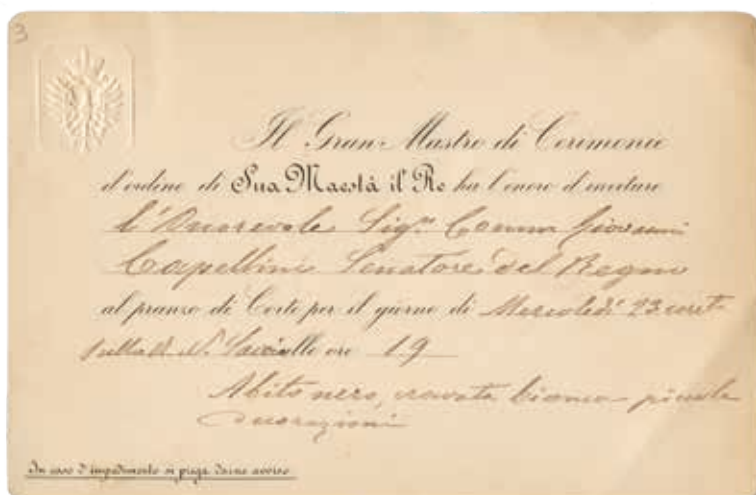 3
Il Gran Mastro di Cerimonie
d'ordine di Sua Maestà il Re ha l'onore d'invitare
l'Onorevole Sig.r Comm Giovanni
Capellini Senatore del Regno
al pranzo di Corte per il giorno di Mercoledì 23 corrte
alle ore 19
Abito nero, cravata bianca piccole
decorazioni
In caso d'impedimento si prega darne avviso